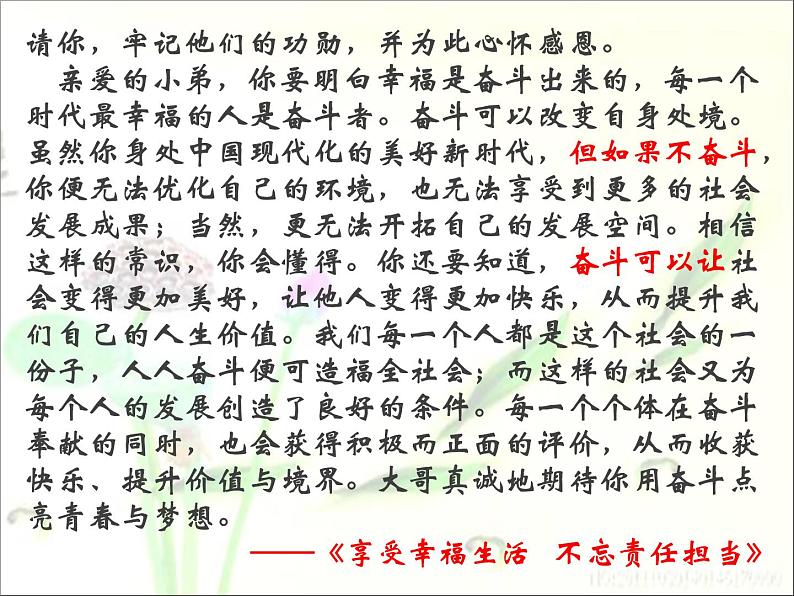 请你，牢记他们的功勋，并为此心怀感恩。
亲爱的小弟，你要明白幸福是奋斗出来的，每一个
时代最幸福的人是奋斗者。奋斗可以改变自身处境。
虽然你身处中国现代化的美好新时代，但如果不奋斗，
你便无法优化自己的环境，也无法享受到更多的社会
发展成果；当然，更无法开拓自己的发展空间。相信
这样的常识，你会懂得。你还要知道，奋斗可以让社
会变得更加美好，让他人变得更加快乐，从而提升我
们自己的人生价值。我们每一个人都是这个社会的一
份子，人人奋斗便可造福全社会；而这样的社会又为
每个人的发展创造了良好的条件。每一个个体在奋斗
奉献的同时，也会获得积极而正面的评价，从而收获
快乐、提升价值与境界。大哥真诚地期待你用奋斗点
亮青春与梦想。
——《享受幸福生活 不忘责任担当》